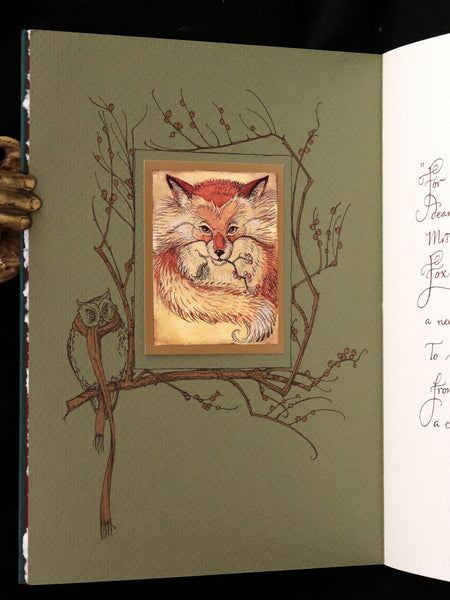 "For
dear
Mrs
Fox
a ne
To
from
a c